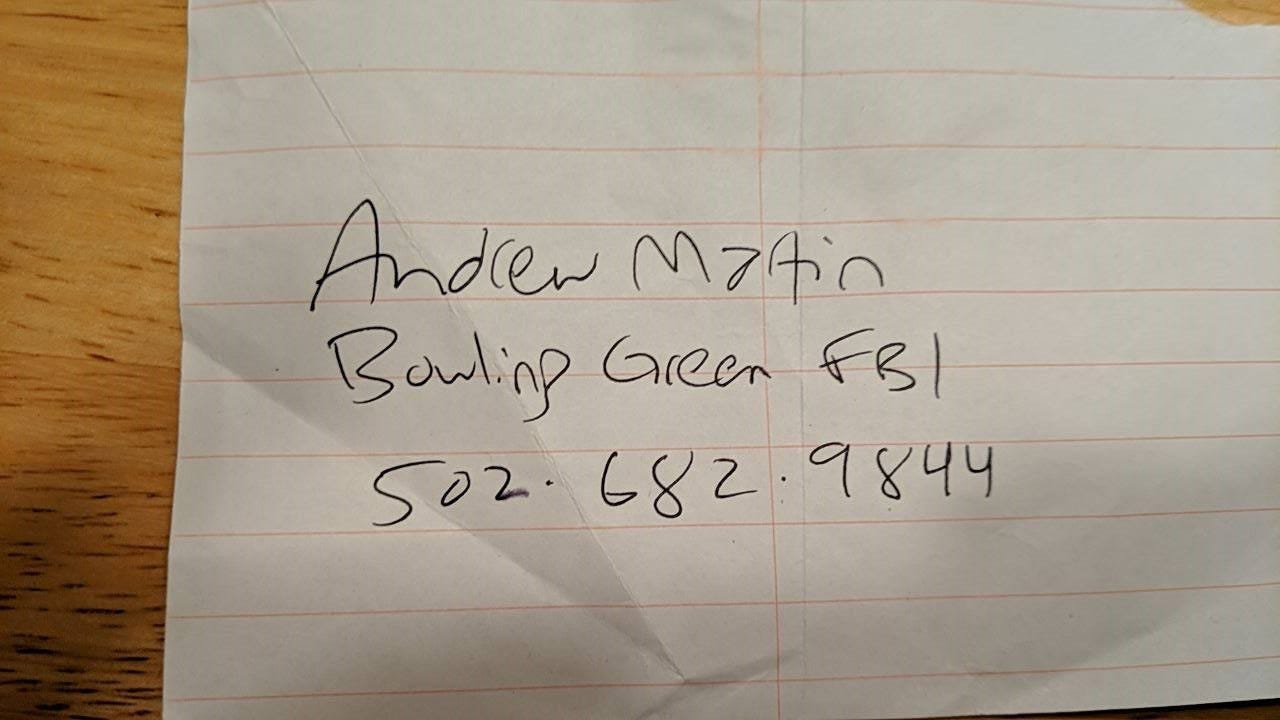 Andrew Martin
Bowling Green FBI
502.682.9844